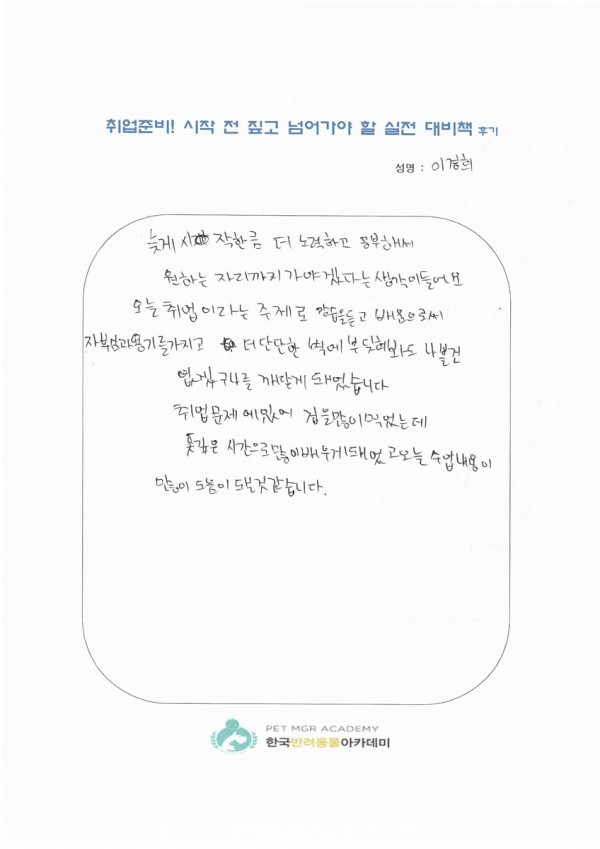 취업준비! 시작 전 짚고 넘어가야 할 실전 대비책 후기
성명 : 이경희
늦게 시작한큼 더 노력하고 공부해서
원하는 자리까지 가야겠다는 생각이들어요
오늘 취업이라는 주제로 강습을듣고 배움으로써
자부심과용기를가지고 더단단한 벽에 부딪혀봐도 나쁠건
없겠구나를 깨닫게 돼었습니다
취업문제에있어 겁을많이먹었는데
뜻깊은 시간으로많이배우게돼었고오늘 수업내용이
많이 도움이 될것같습니다.
PET MGR ACADEMY
한국반려동물아카데미